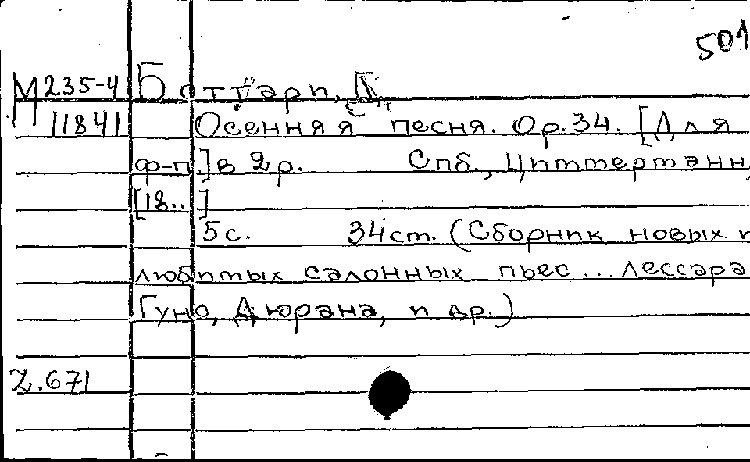 501
М 235-4 Боттари,
11841 Осенняя песня. Op. 34. [Для
ф-п.] в 2 р. Спб., Циммерманн,
[18..]
5 с. 34 ст. (Сборник новых и
любимых салонных пьес... Лессара
Гуно, Дюрана, и др.)
2.671